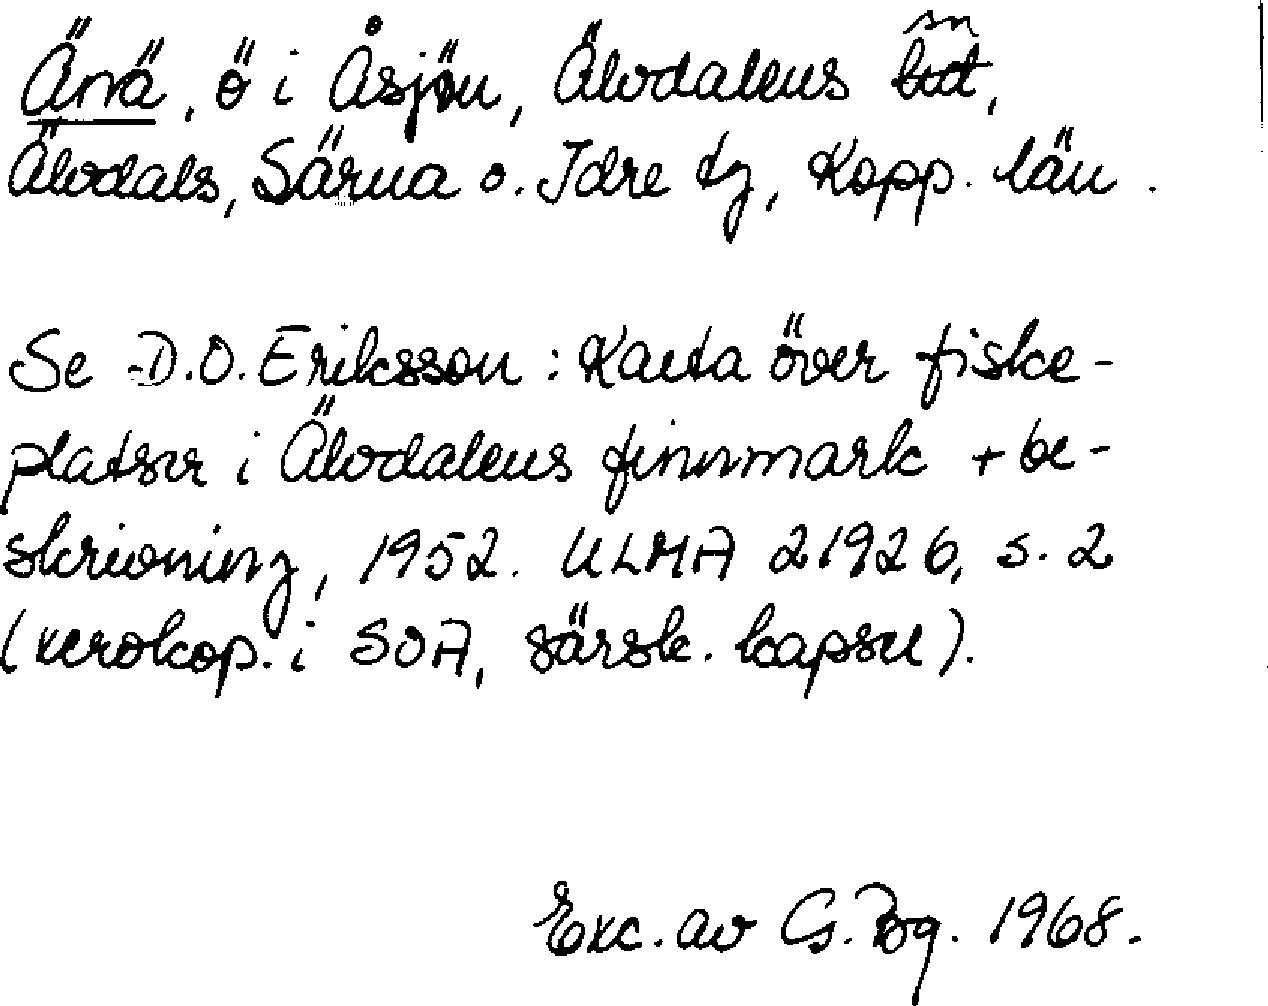 Änä, ö i Åsjön, Älvdalens sn
Älvdals, Särna o. Idre tg, Kopp. län.
Se D.O. Eriksson: Karta över fiske-
platser i Älvdalens finnmark + be-
skrivning, 1952. ULMA 21926, s. 2
(xerokop. i SOA, särsk. kapsel).
Exc. av G. Bg. 1968.